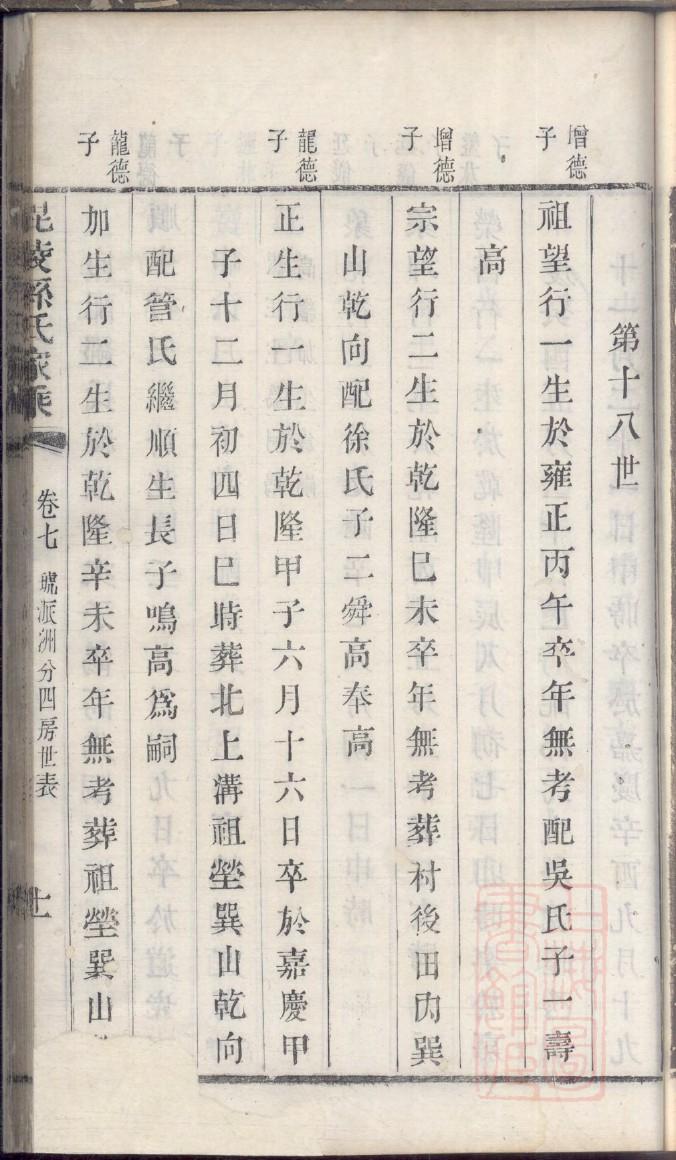 第十八世
增德子
祖望行一生於雍正丙午卒年無考配吳氏子一壽
高
增德子
宗望行二生於乾隆巳未卒年無考葬村後田內巽
山乾向配徐氏子二舜高奉高
龍德子
正生行一生於乾隆甲子六月十六日卒於嘉慶甲
子十二月初四日巳時葬北上溝祖塋巽山乾向
配管氏繼順生長子鳴高爲嗣
龍德子
加生行二生於乾隆辛未卒年無考葬祖塋巽山
毘陵孫氏家乘
卷七
派洲分四房世表